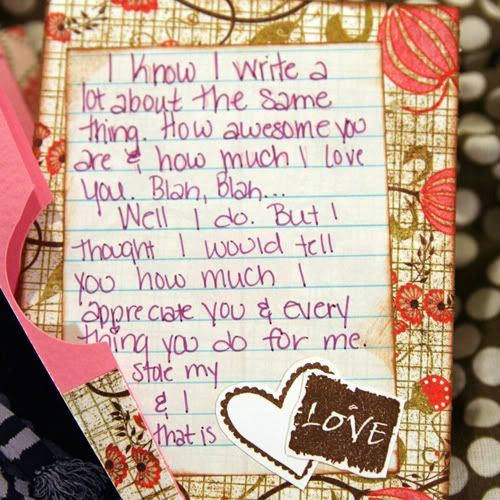 I know I write a
lot about the same
thing. How awesome you
are & how much I love
you. Blah, Blah...
Well I do. But I
thought I would tell
you how much I
appreciate you & every
thing you do for me.
stole my
& I
that is
LOVE